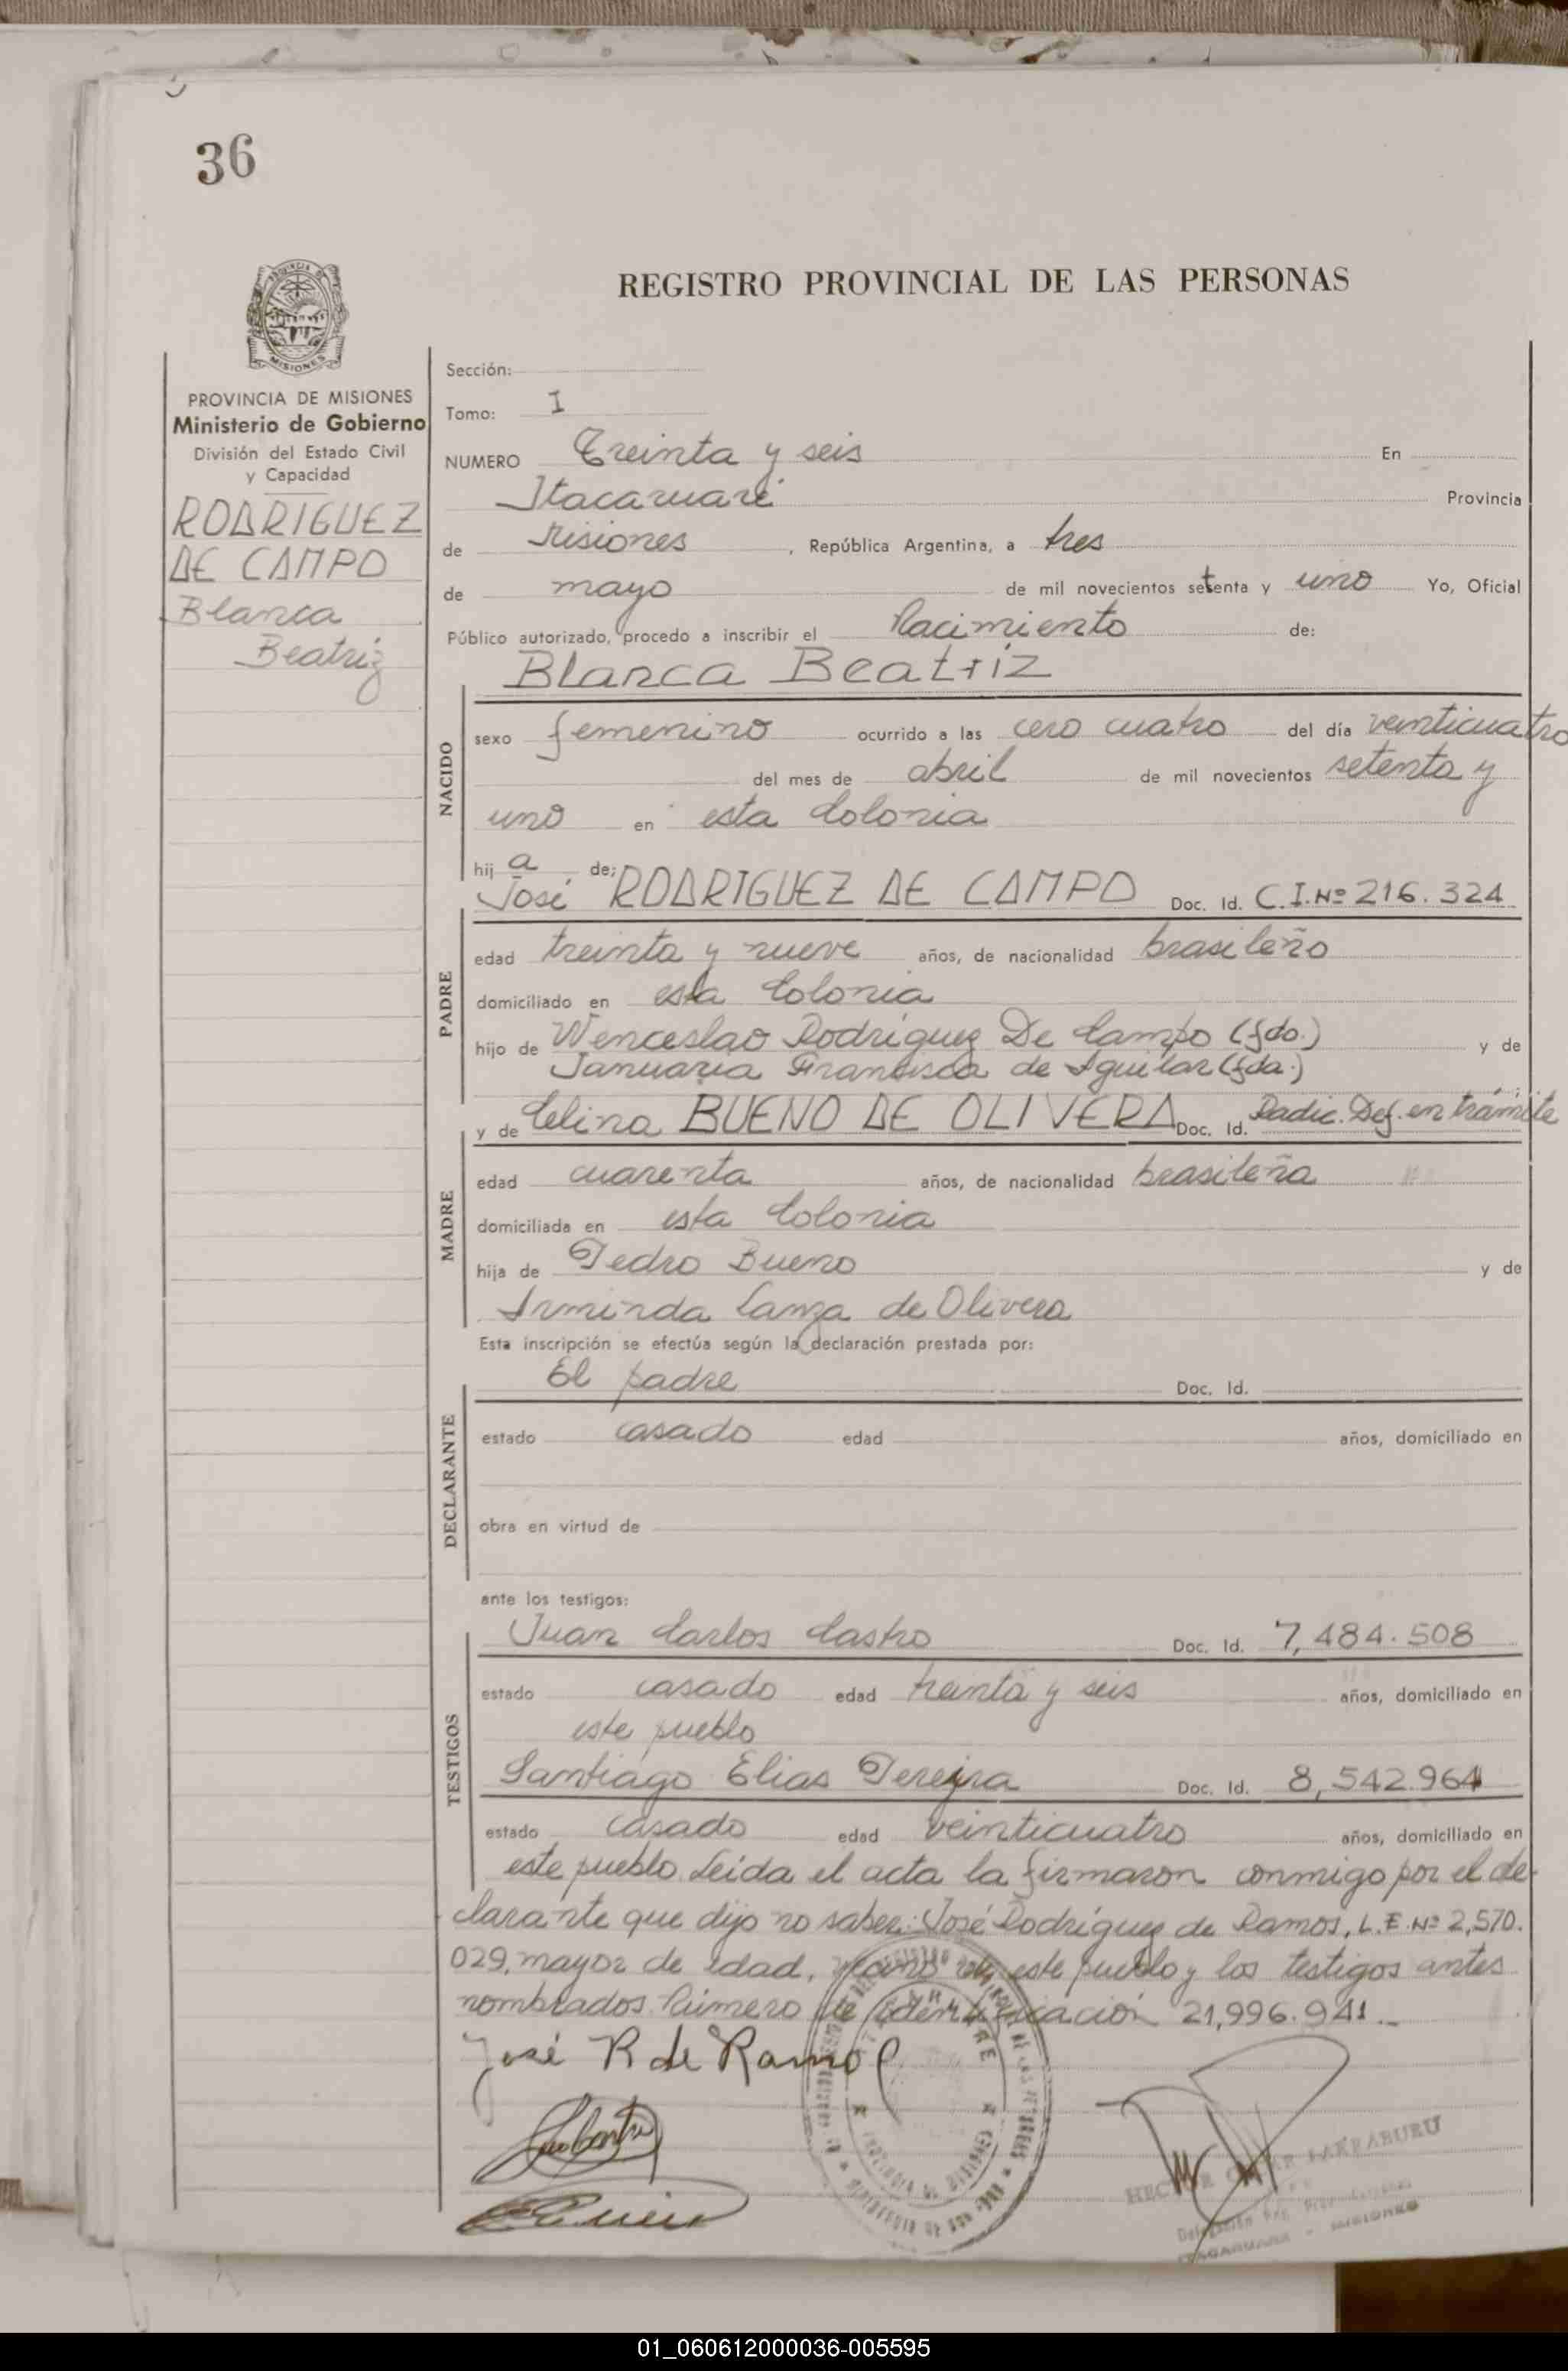 36
REGISTRO PROVINCIAL DE LAS PERSONAS
MISIONES
PROVINCIA DE MISIONES
Ministerio de Gobierno
División del Estado Civil
y Capacidad
RODRIGUEZ
DE CAMPO
Blanca
Beatriz
Sección:
Tomo: I
NUMERO Treinta y seis En
Itacaruaré Provincia
de Misiones, República Argentina, a tres
de mayo de mil novecientos setenta y uno Yo, Oficial
Público autorizado, procedo a inscribir el Nacimiento de:
Blanca Beatriz
NACIDO
sexo femenino ocurrido a las cero cuatro del día veinticuatro
del mes de abril de mil novecientos setenta y
uno en esta Colonia
hij a de:
José RODRIGUEZ DE CAMPO Doc. Id. C.I.Nº 216.324
PADRE
edad treinta y nueve años, de nacionalidad brasileño
domiciliado en esta Colonia
hijo de Wenceslao Rodríguez De Campo (fdo.) y de
Januaria Francisca de Aguilar (fda.)
y de Celina BUENO DE OLIVERA Doc. Id. Radic. Def. en trámite
MADRE
edad cuarenta años, de nacionalidad brasileña
domiciliada en esta Colonia
hija de Pedro Bueno y de
Arminda Lanza de Olivera
Esta inscripción se efectúa según la declaración prestada por:
El padre Doc. Id.
DECLARANTE
estado casado edad años, domiciliado en
obra en virtud de
ante los testigos:
Juan Carlos Castro Doc. Id. 7,484.508
TESTIGOS
estado casado edad treinta y seis años, domiciliado en
este pueblo
Santiago Elias Pereira Doc. Id. 8,542.964
estado casado edad veinticuatro años, domiciliado en
este pueblo. Leida el acta la firmaron conmigo por el de-
clarante que dijo no saber: José Rodríguez de Ramos, L.E.Nº 2,570.
029, mayor de edad, vecino de este pueblo y los testigos antes
nombrados. Número de identificación 21,996.941.-
José R de Ramos
HECTOR OMAR LARRABURU
01_060612000036-005595